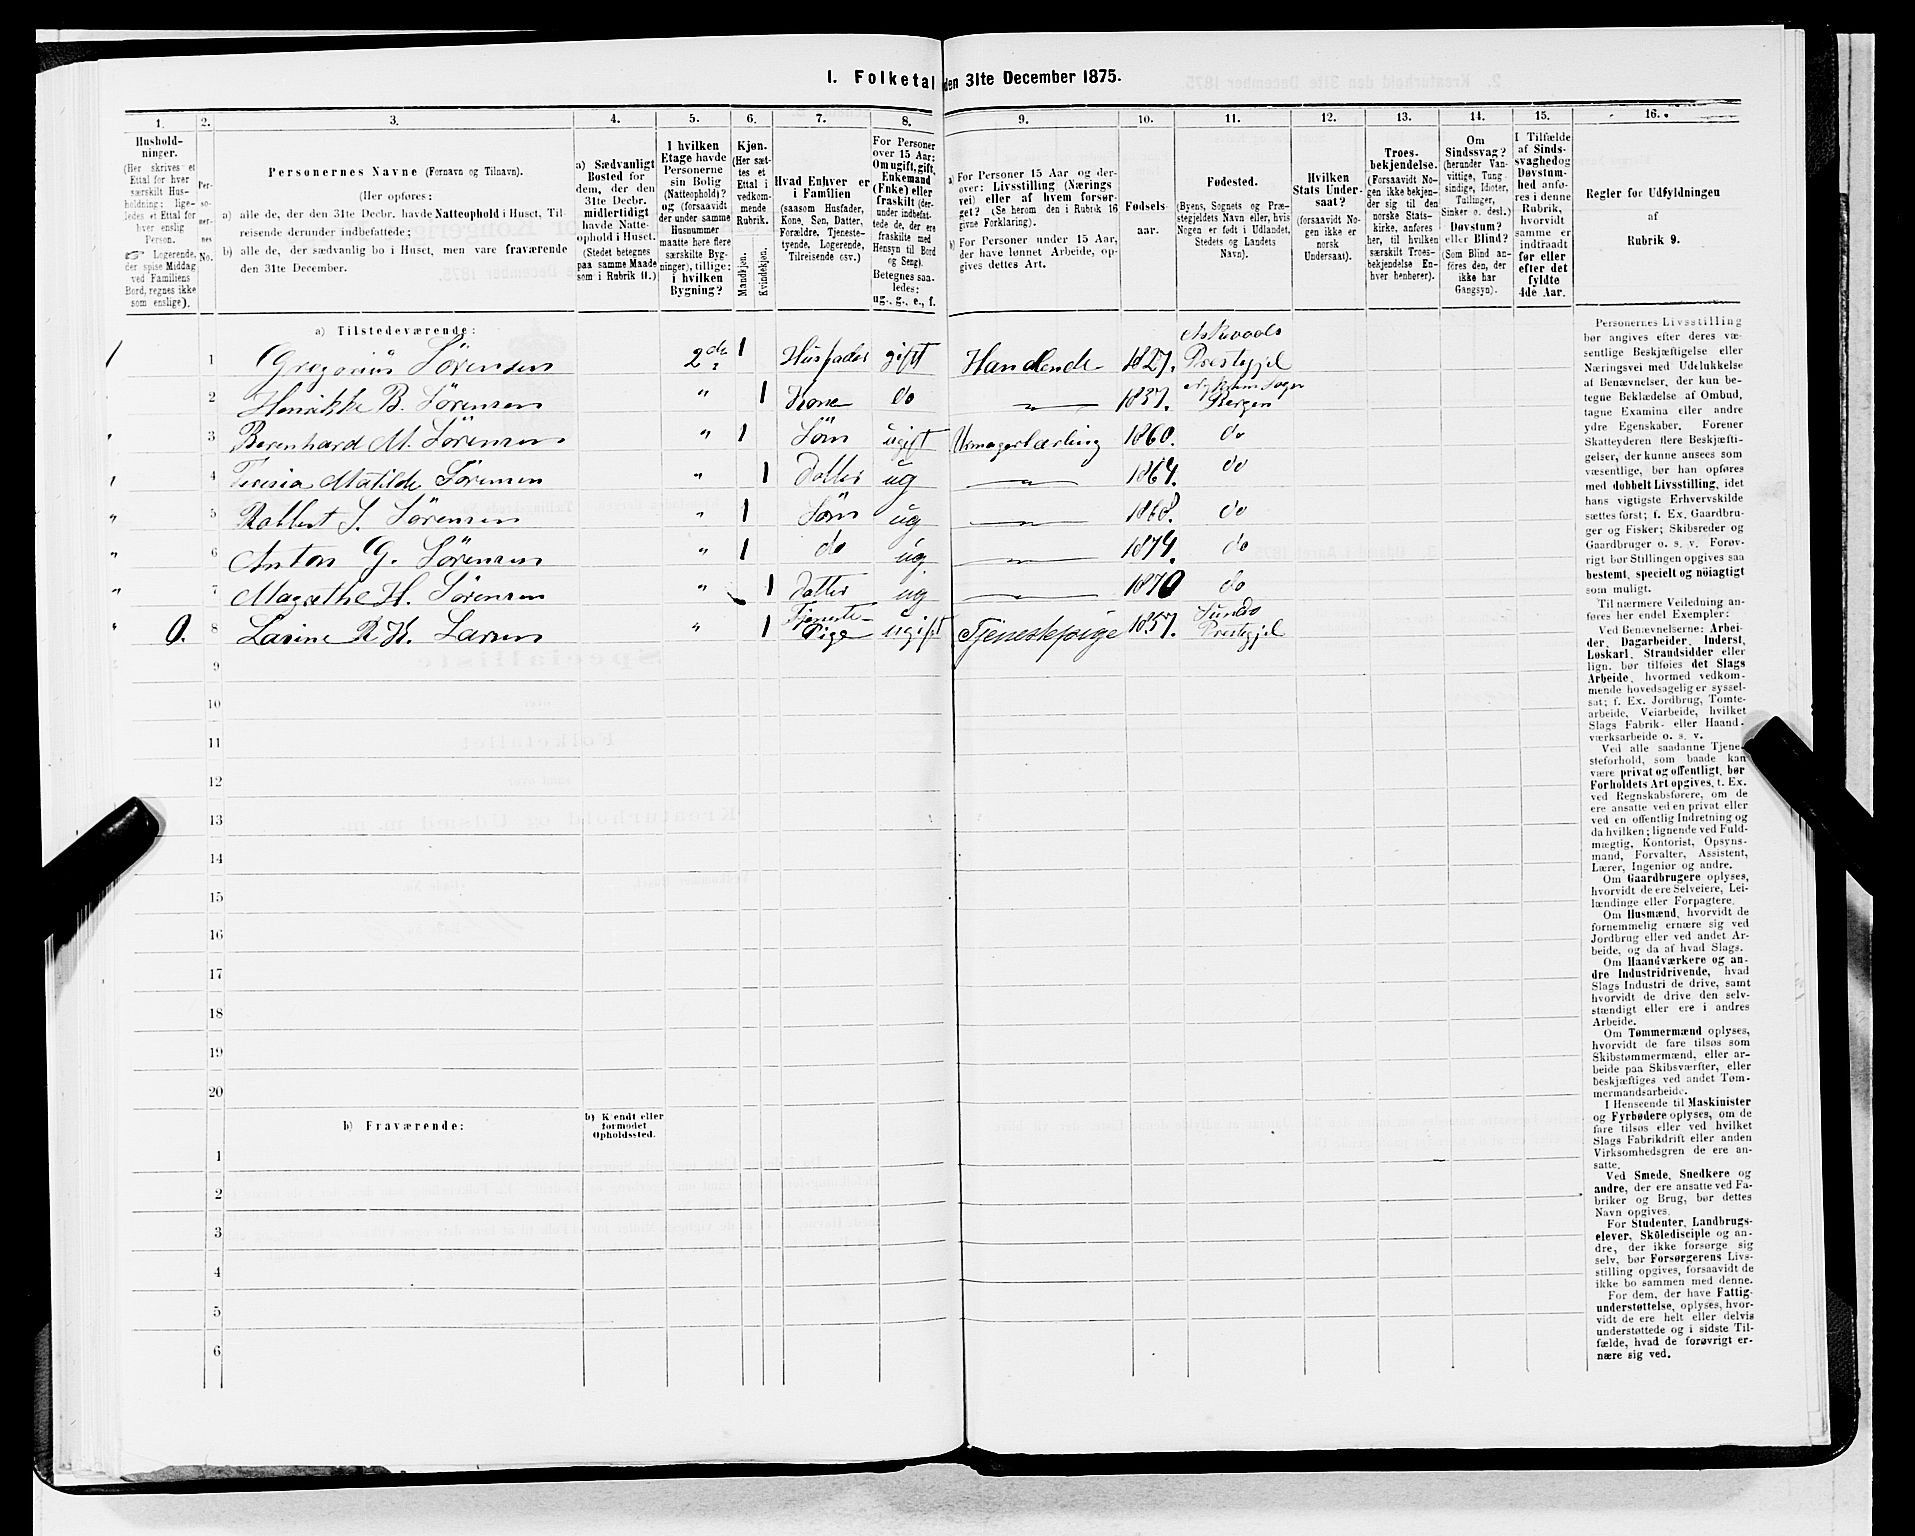 I. Folketal den 31te December 1875.
1. 2. 3. 4. 5. 6. 7. 8. 9. 10. 11. 12. 13. 14. 15. 16.
Hushold-
ninger.
(Her skrives et
Ettal for hver
særskilt Hus-
holdning; lige-
ledes et Ettal for
hver enslig
Person.
☞ Logerende,
der spise Middag
ved Familiens
Bord, regnes ikke
som enslige).
Per-
soner-
nes
No.
Personernes Navne (Fornavn og Tilnavn).
(Her opføres:
a) alle de, der den 31te Decbr. havde Natteophold i Huset, Til-
reisende derunder indbefattede;
b) alle de, der sædvanlig bo i Huset, men vare fraværende
den 31te December.
a) Sædvanligt
Bosted for
dem, der den
31te Decbr.
midlertidigt
havde Natte-
ophold i Huset.
(Stedet betegnes
paa samme Maade
som i Rubrik 11.)
I hvilken
Etage havde
Personerne
sin Bolig
(Natteophold)?
og (forsaavidt
der under samme
Husnummer
maatte høre flere
særskilte Byg-
ninger), tillige:
i hvilken
Bygning?
Kjøn.
(Her sæt-
tes et
Ettal i
vedkom-
mende
Rubrik.
Mandkjøn.
Kvindekjøn.
Hvad Enhver er
i Familien
(saasom Husfader,
Kone, Søn, Datter,
Forældre, Tjeneste-
tyende, Logerende,
Tilreisende osv.)
For Personer
over 15 Aar:
Om ugift, gift,
Enkemand
(Enke) eller
fraskilt (der-
under indbefat-
tede de, der ere
fraskilte med
Hensyn til Bord
og Seng).
Betegnes saa-
ledes:
ug., g., e., f.
a) For Personer 15 Aar og der-
over: Livsstilling (Nærings-
vei) eller af hvem forsør-
get? (Se herom den i Rubrik 16
givne Forklaring).
b) For Personer under 15 Aar,
der have lønnet Arbeide, op-
gives dettes Art.
Fødsels-
aar.
Fødested.
(Byens, Sognets og Præ-
stegjeldets Navn eller, hvis
Nogen er født i Udlandet,
Stedets og Landets
Navn).
Hvilken
Stats Under-
saat?
(forsaavidt No-
gen ikke er
norsk
Undersaat).
Troes-
bekjendelse.
(Forsaavidt No-
gen ikke bekjen-
der sig til den
norske Stats-
kirke, anføres
her, til hvilken
særskilt Troes-
bekjendelse En-
hver henhører).
Om
Sindssvag?
(herunder Van-
vittige, Tung-
sindige, Idioter,
Tullinger,
Sinker o. desl.)
Døvstum?
eller Blind?
(Som Blind an-
føres den, der
ikke har
Gangsyn).
I Tilfælde
af Sinds-
svaghed og
Døvstum-
hed anfø-
res i denne
Rubrik,
hvorvidt
samme er
indtraadt
før eller
efter det
fyldte
4de Aar.
Regler for Udfyldningen
af
Rubrik 9.
a) Tilstedeværende:
1 1 Gregorius Sørensen 2de 1 Husfader gift Handlende 1827. Askevolds Prestegjel
2 Henrikke B. Sørensen " 1 Kone do " 1837. Nykirkesogn Bergen
" 3 Berenhard M. Sørensen " 1 Søn ugift Urmagerlærling 1860. do
" 4 Teresia Matilde Sørensen " 1 Datter ug " 1864. do
" 5 Robbert S. Sørensen " 1 Søn ug " 1868. do
" 6 Anton G. Sørensen " 1 do ug " 1874. do
" 7 Magrethe H. Sørensen " 1 Datter ug " 1870 do
" 0. 8 Larsen " 1 Tjeneste- Pige ugift Tjenestepige 1857. Prestegjel
9
10
11
12
13
14
15
16
17
18
19
20
b) Fraværende:
b) Kjendt eller
formodet
Opholdssted.
1
2
3
4
5
6
Personernes Livsstilling
bør angives efter deres væ-
sentlige Beskjæftigelse eller
Næringsvei med Udelukkelse
af Benævnelser, der kun be-
tegne Beklædelse af Ombud,
tagne Examina eller andre
ydre Egenskaber. Forener
Skatteyderen flere Beskjæfti-
gelser, der kunne ansees som
væsentlige, bør han opføres
med dobbelt Livsstilling, idet
hans vigtigste Erhvervskilde
sættes først; f. Ex. Gaardbru-
ger og Fisker; Skibsreder og
Gaardbruger o. s. v. Forøv-
rigt bør Stillingen opgives saa
bestemt, specielt og nöiagtigt
som muligt.
Til nærmere Veiledning an-
føres her endel Exempler:
Ved Benævnelserne: Arbei-
der, Dagarbeider, Inderst,
Løskarl, Strandsidder eller
lign. bør tilføies det Slags
Arbeide, hvormed vedkom-
mende hovedsagelig er syssel-
sat; f. Ex. Jordbrug, Tomte-
arbeide, Veiarbeide, hvilket
Slags Fabrik- eller Haand-
værksarbeide o. s. v.
Ved alle saadanne Tjene-
steforhold, som baade kan
være privat og offentligt, bør
Forholdets Art opgives, t. Ex.
ved Regnskabsførere, om de
ere ansatte ved en privat eller
ved en offentlig Indretning og
da hvilken; lignende ved Fuld-
mægtig, Kontorist, Opsyns-
mand, Forvalter, Assistent,
Lærer, Ingeniør og andre.
Om Gaardbrugere oplyses,
hvorvidt de ere Selveiere, Lei-
lændinge eller Forpagtere.
Om Husmænd, hvorvidt de
fornemmelig ernære sig ved
Jordbrug eller ved andet Ar-
beide, og da af hvad Slags.
Om Haandværkere og an-
dre Industridrivende, hvad
Slags Industri de drive, samt
hvorvidt de drive den selv-
stændigt eller ere i andres
Arbeide.
Om Tømmermænd oplyses,
hvorvidt de fare tilsøs som
Skibstømmermænd, eller ar-
beide paa Skibsværfter, eller
beskjæftiges ved andet Tøm-
mermandsarbeide.
I Henseende til Maskinister
og Fyrbødere oplyses, om de
fare tilsøs eller ved hvilket
Slags Fabrikdrift eller anden
Virksomhedsgren de ere an-
satte.
Ved Smede, Snedkere og
andre, der ere ansatte ved Fa-
briker og Brug, bør dettes
Navn opgives.
For Studenter, Landbrugs-
elever, Skoledisciple og an-
dre, der ikke forsørge sig
selv, bør Forsørgerens Livs-
stilling opgives, forsaavidt de
ikke bo sammen med denne.
For dem, der have Fattig-
understøttelse, oplyses, hvor-
vidt de ere helt eller delvis
understøttede og i sidste Til-
fælde, hvad de forøvrigt er-
nære sig ved.